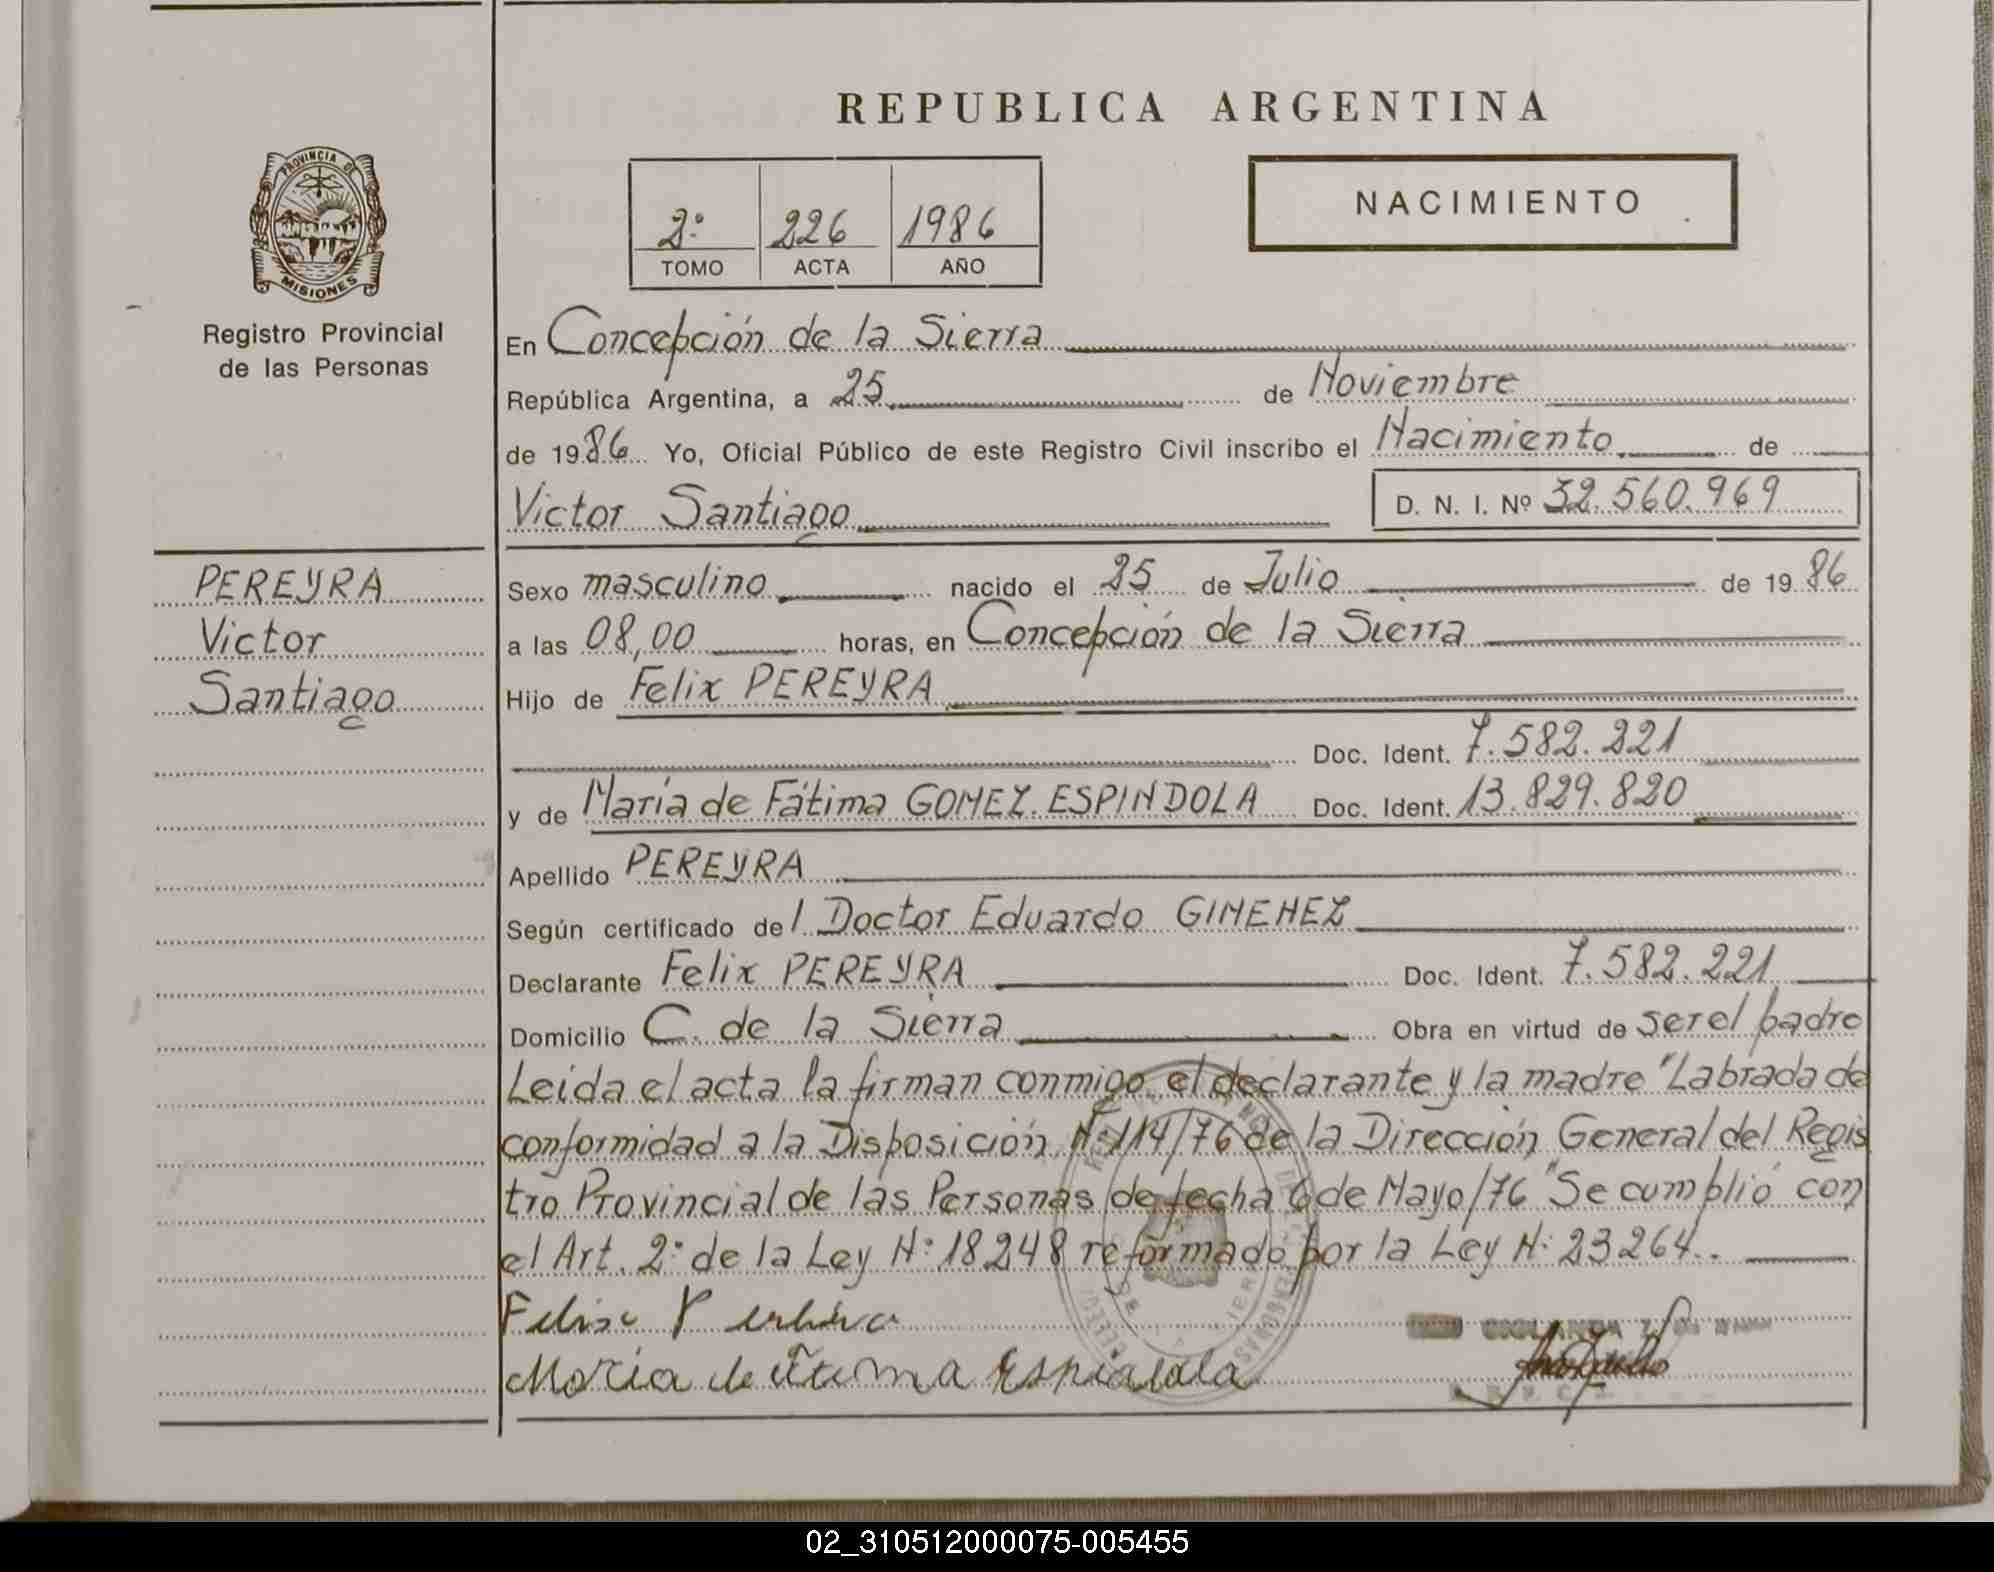 REPUBLICA ARGENTINA
PROVINCIA DE
MISIONES
Registro Provincial
de las Personas
2º 226 1986
TOMO ACTA AÑO
NACIMIENTO
En Concepción de la Sierra
República Argentina, a 25 de Noviembre
de 1986 Yo, Oficial Público de este Registro Civil inscribo el Nacimiento de
Victor Santiago D. N. I. Nº 32.560.969
PEREYRA
Victor
Santiago
Sexo masculino nacido el 25 de Julio de 1986
a las 08,00 horas, en Concepción de la Sierra
Hijo de Felix PEREYRA
Doc. Ident. 7.582.221
y de María de Fátima GOMEZ ESPINDOLA Doc. Ident. 13.829.820
Apellido PEREYRA
Según certificado del Doctor Eduardo GIMENEZ
Declarante Felix PEREYRA Doc. Ident. 7.582.221
Domicilio C. de la Sierra Obra en virtud de ser el padre
Leida el acta la firman conmigo el declarante y la madre "Labrada de
conformidad a la Disposición Nº 114/76 de la Dirección General del Regis
tro Provincial de las Personas de fecha 6 de Mayo/76" Se cumplió con
el Art. 2º de la Ley Nº 18248 reformado por la Ley Nº 23264.
Felix
Maria de Espindola
02_310512000075-005455